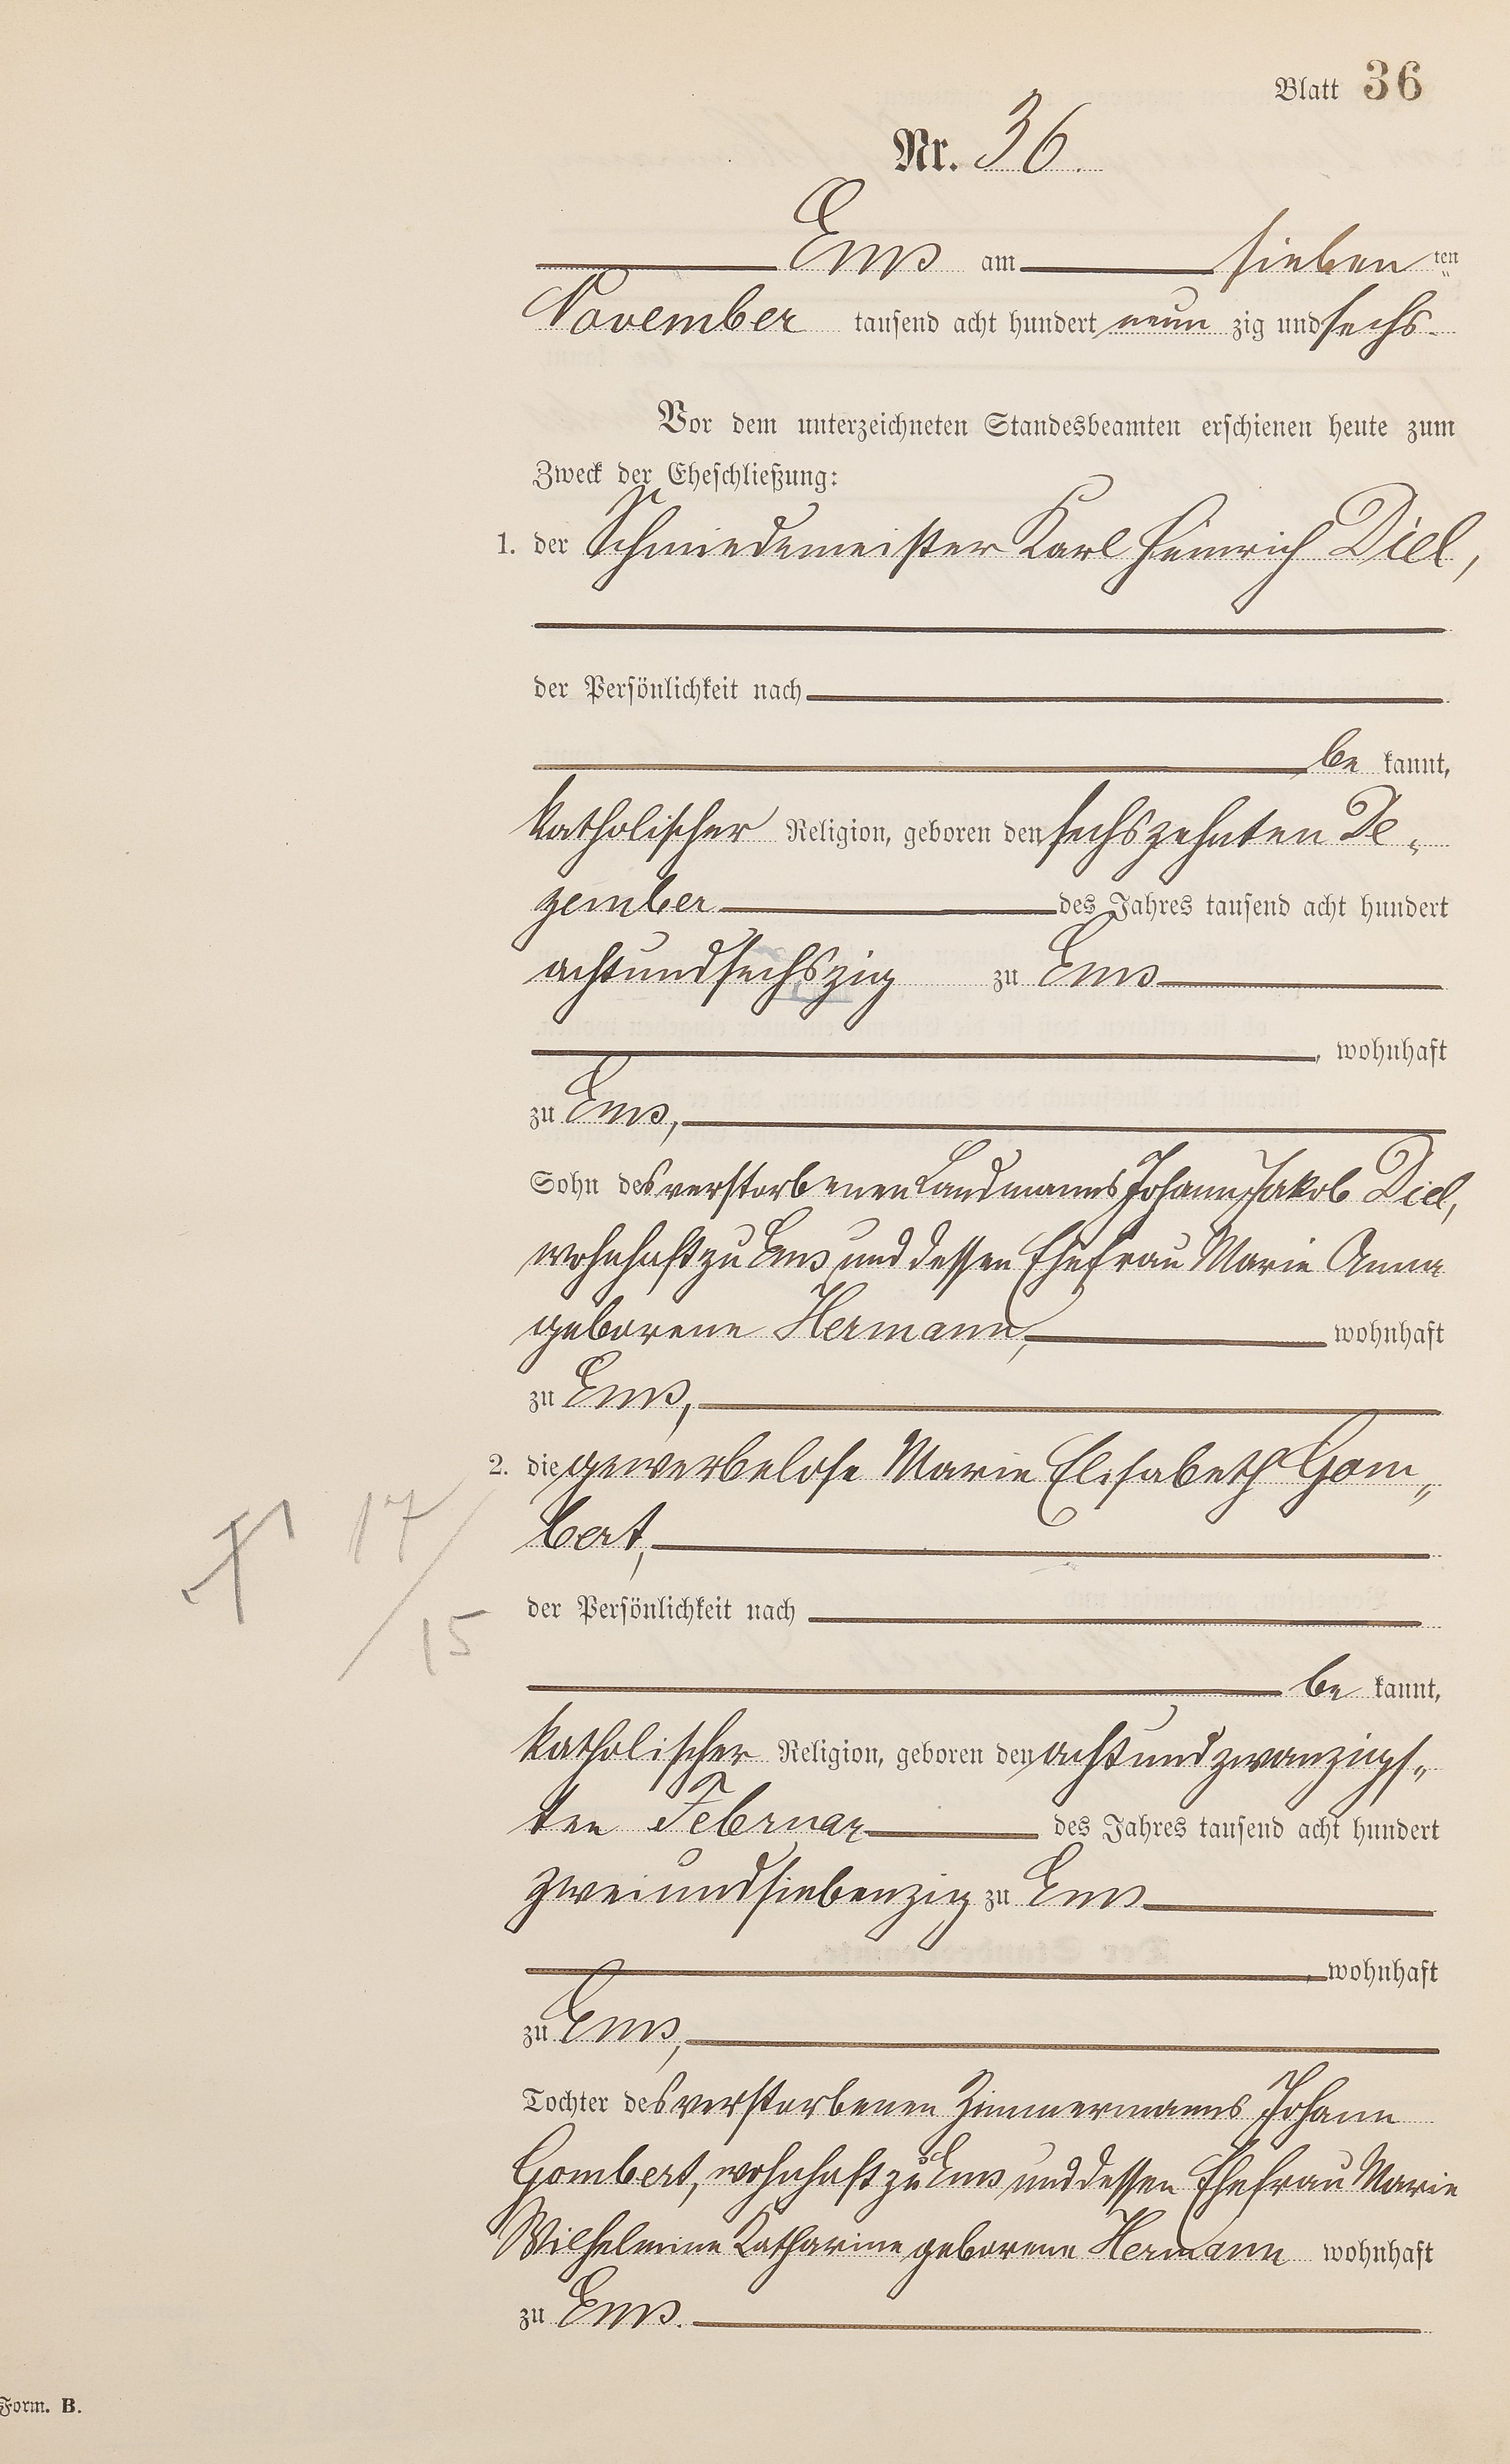 Blatt 36
Nr. 36.
Ems am sieben ten
November tausend acht hundert neun zig und sechs.
Vor dem unterzeichneten Standesbeamten erschienen heute zum
Zweck der Eheschließung:
1. der Schmiedemeister Karl Heinrich Diel,
der Persönlichkeit nach
be kannt,
katholischer Religion, geboren den sechszehnten De„
zember des Jahres tausend acht hundert
achtundsechszig zu Ems
, wohnhaft
zu Ems,
Sohn des verstorbenen Landmanns Johann Jakob Diel,
wohnhaft zu Ems und dessen Ehefrau Marie Anna
geborene Hermann, wohnhaft
zu Ems,
2. die gewerbelose Marie Elisabeth Gom„
bert,
17
15
der Persönlichkeit nach
be kannt,
katholischer Religion, geboren den achtundzwanzigs„
ten Februar des Jahres tausend acht hundert
zweiundsiebenzig zu Ems
, wohnhaft
zu Ems,
Tochter des verstorbenen Zimmermanns Johann
Gombert, wohnhaft zu Ems und dessen Ehefrau Marie
Wilhelmine Katharine geborene Hermann wohnhaft
zu Ems.
Form. B.